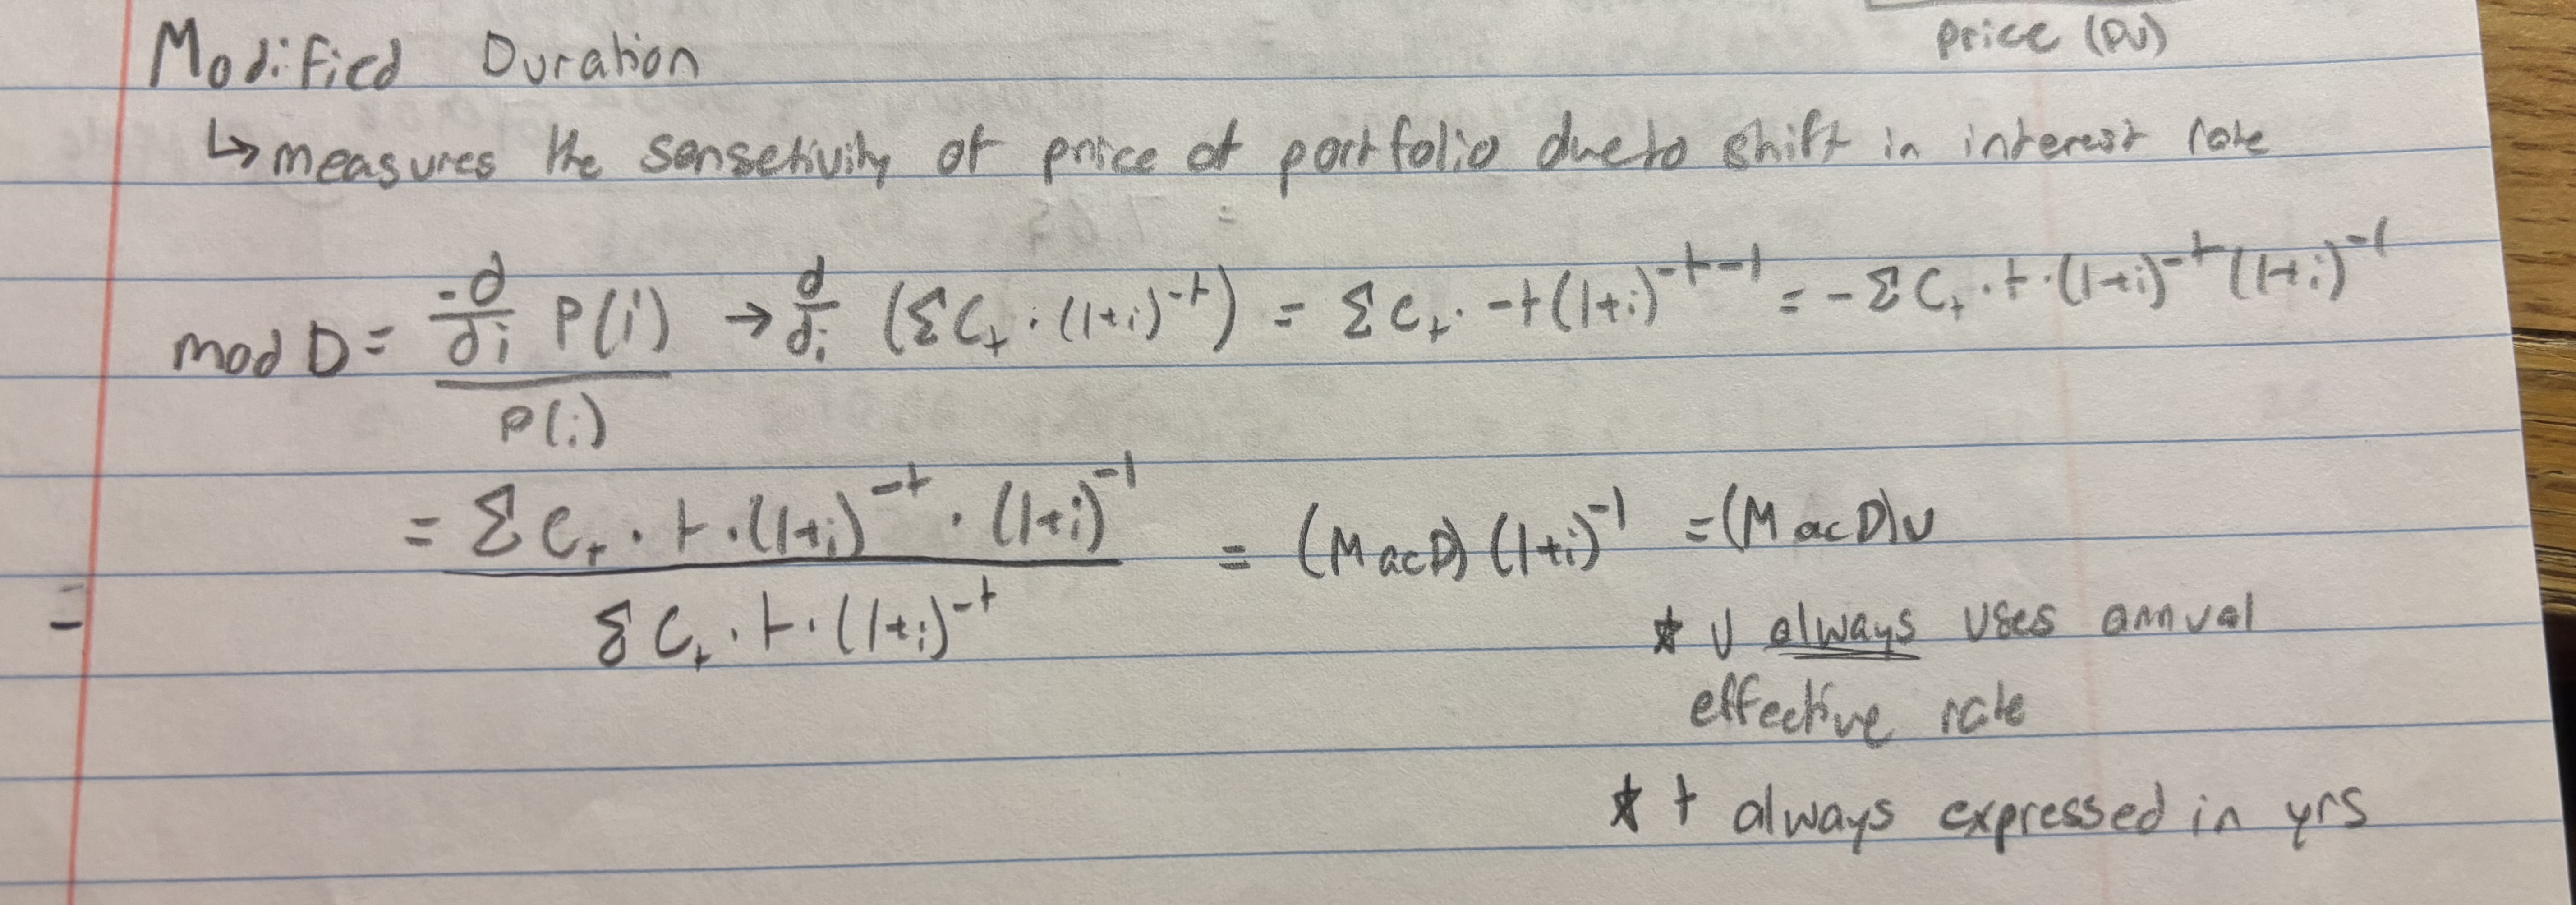 price (PV)
Modified Duration
↳ measures the sensetivity of price of portfolio due to shift in interest rate
mod D = (-d/di P(i)) / P(i) → d/di (ΣC_t · (1+i)^-t) = Σ C_t · -t(1+i)^-t-1 = -Σ C_t · t · (1+i)^-t (1+i)^-1
= (Σ C_t · t · (1+i)^-t · (1+i)^-1) / (Σ C_t · t · (1+i)^-t) = (MacD) (1+i)^-1 = (MacD)v
=
* v always uses annual
effective rate
* t always expressed in yrs